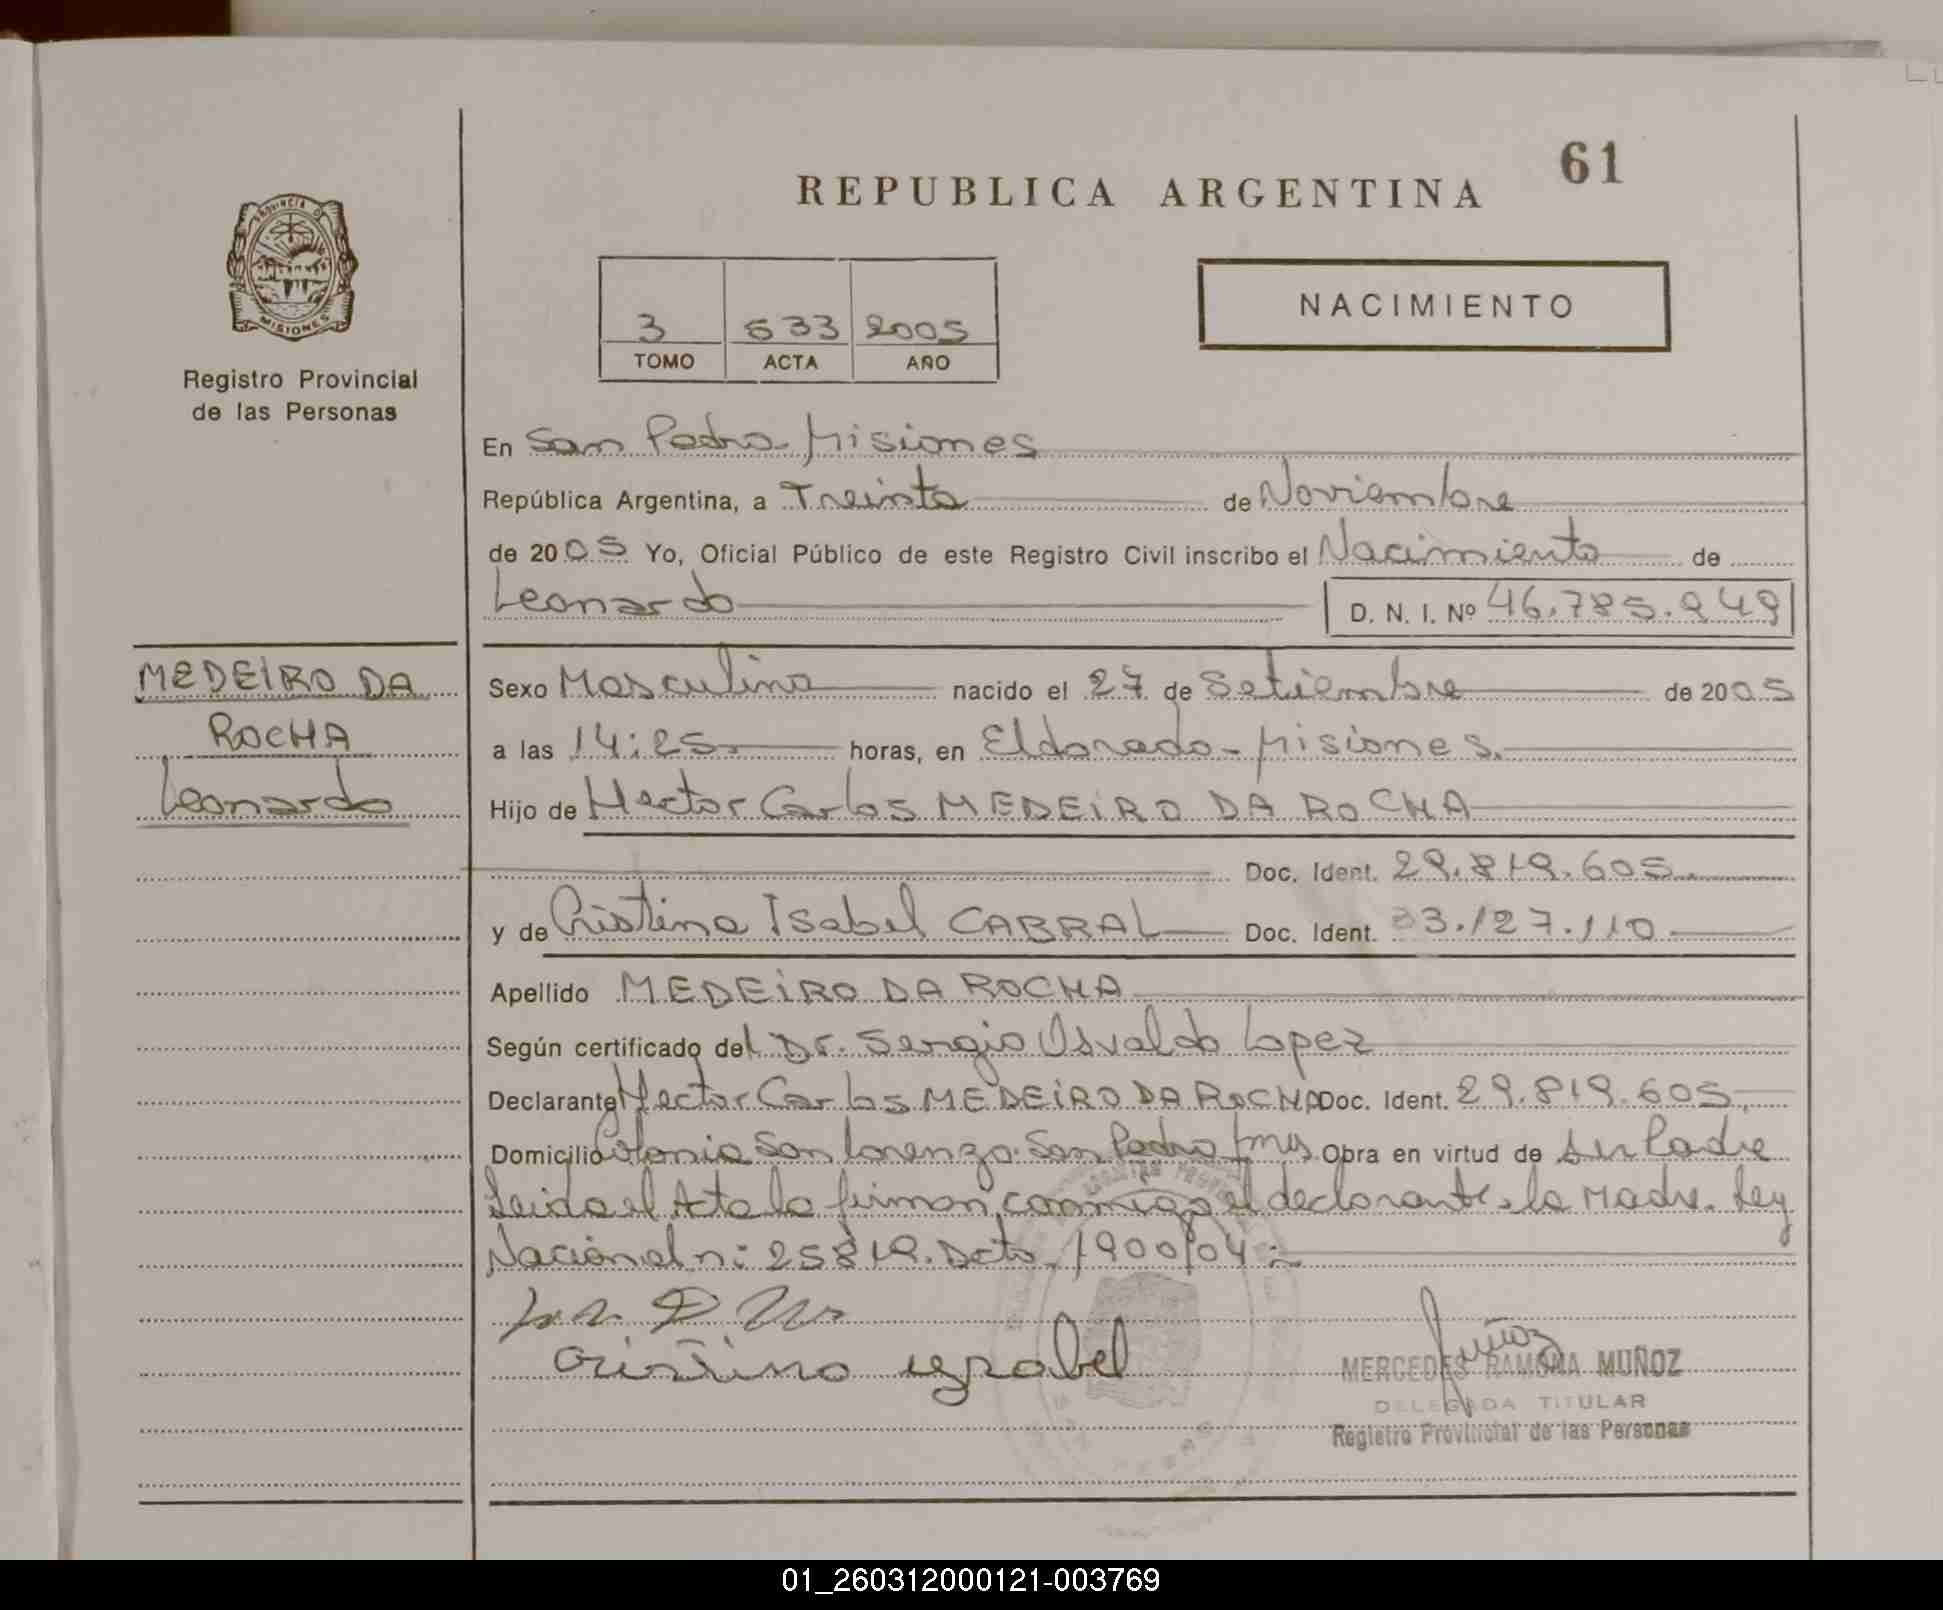 61
REPUBLICA ARGENTINA
PROVINCIA D
MISIONES
Registro Provincial
de las Personas
NACIMIENTO
3 533 2005
TOMO ACTA AÑO
En San Pedro Misiones
República Argentina, a Treinta de Noviembre
de 2005 Yo, Oficial Público de este Registro Civil inscribo el Nacimiento de
Leonardo D. N. I. Nº 46.785.949
MEDEIRO DA
ROCHA
Leonardo
Sexo Masculino nacido el 27 de Setiembre de 2005
a las 14:25. horas, en Eldorado - Misiones.
Hijo de Hector Carlos MEDEIRO DA ROCHA
Doc. Ident. 29.819.605.
y de Cristina Isabel CABRAL Doc. Ident. 33.127.110
Apellido MEDEIRO DA ROCHA
Según certificado del Dr. Sergio Osvaldo Lopez
Declarante Hector Carlos MEDEIRO DA ROCHA Doc. Ident. 29.819.605.
Domicilio Colonia San Lorenzo. San Pedro Obra en virtud de su Padre
Leida el Acta la firman conmigo el declarante, la Madre. Ley
Nacional n: 25819. Dcto. 1900/04
cristina yzabel
Muñoz
MERCEDES RAMONA MUÑOZ
DELEGADA TITULAR
Registro Provincial de las Personas
01_260312000121-003769